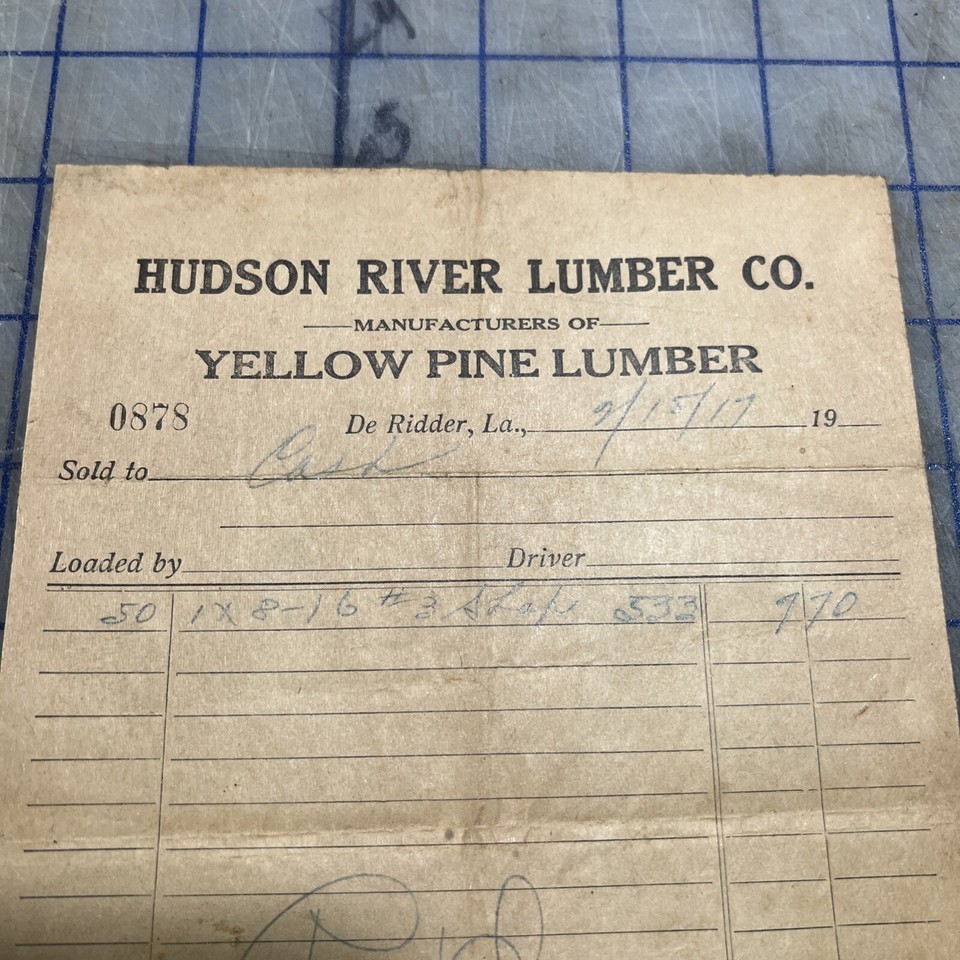 HUDSON RIVER LUMBER CO.
MANUFACTURERS OF
YELLOW PINE LUMBER
0878 De Ridder, La., 9/15/17 19
Sold to Cash
Loaded by Driver
50 1 X 8-16 #3 Shap 533 9 70